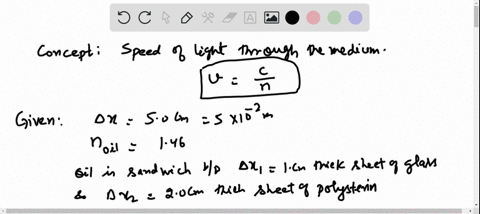 Concept: Speed of light through the medium.
v = c/n
Given: Δx = 5.0 cm = 5 × 10⁻² m
n oil = 1.46
oil is sandwich b/p Δx₁ = 1.cm thick sheet of glass
& Δx₂ = 2.0cm thick sheet of polysterin